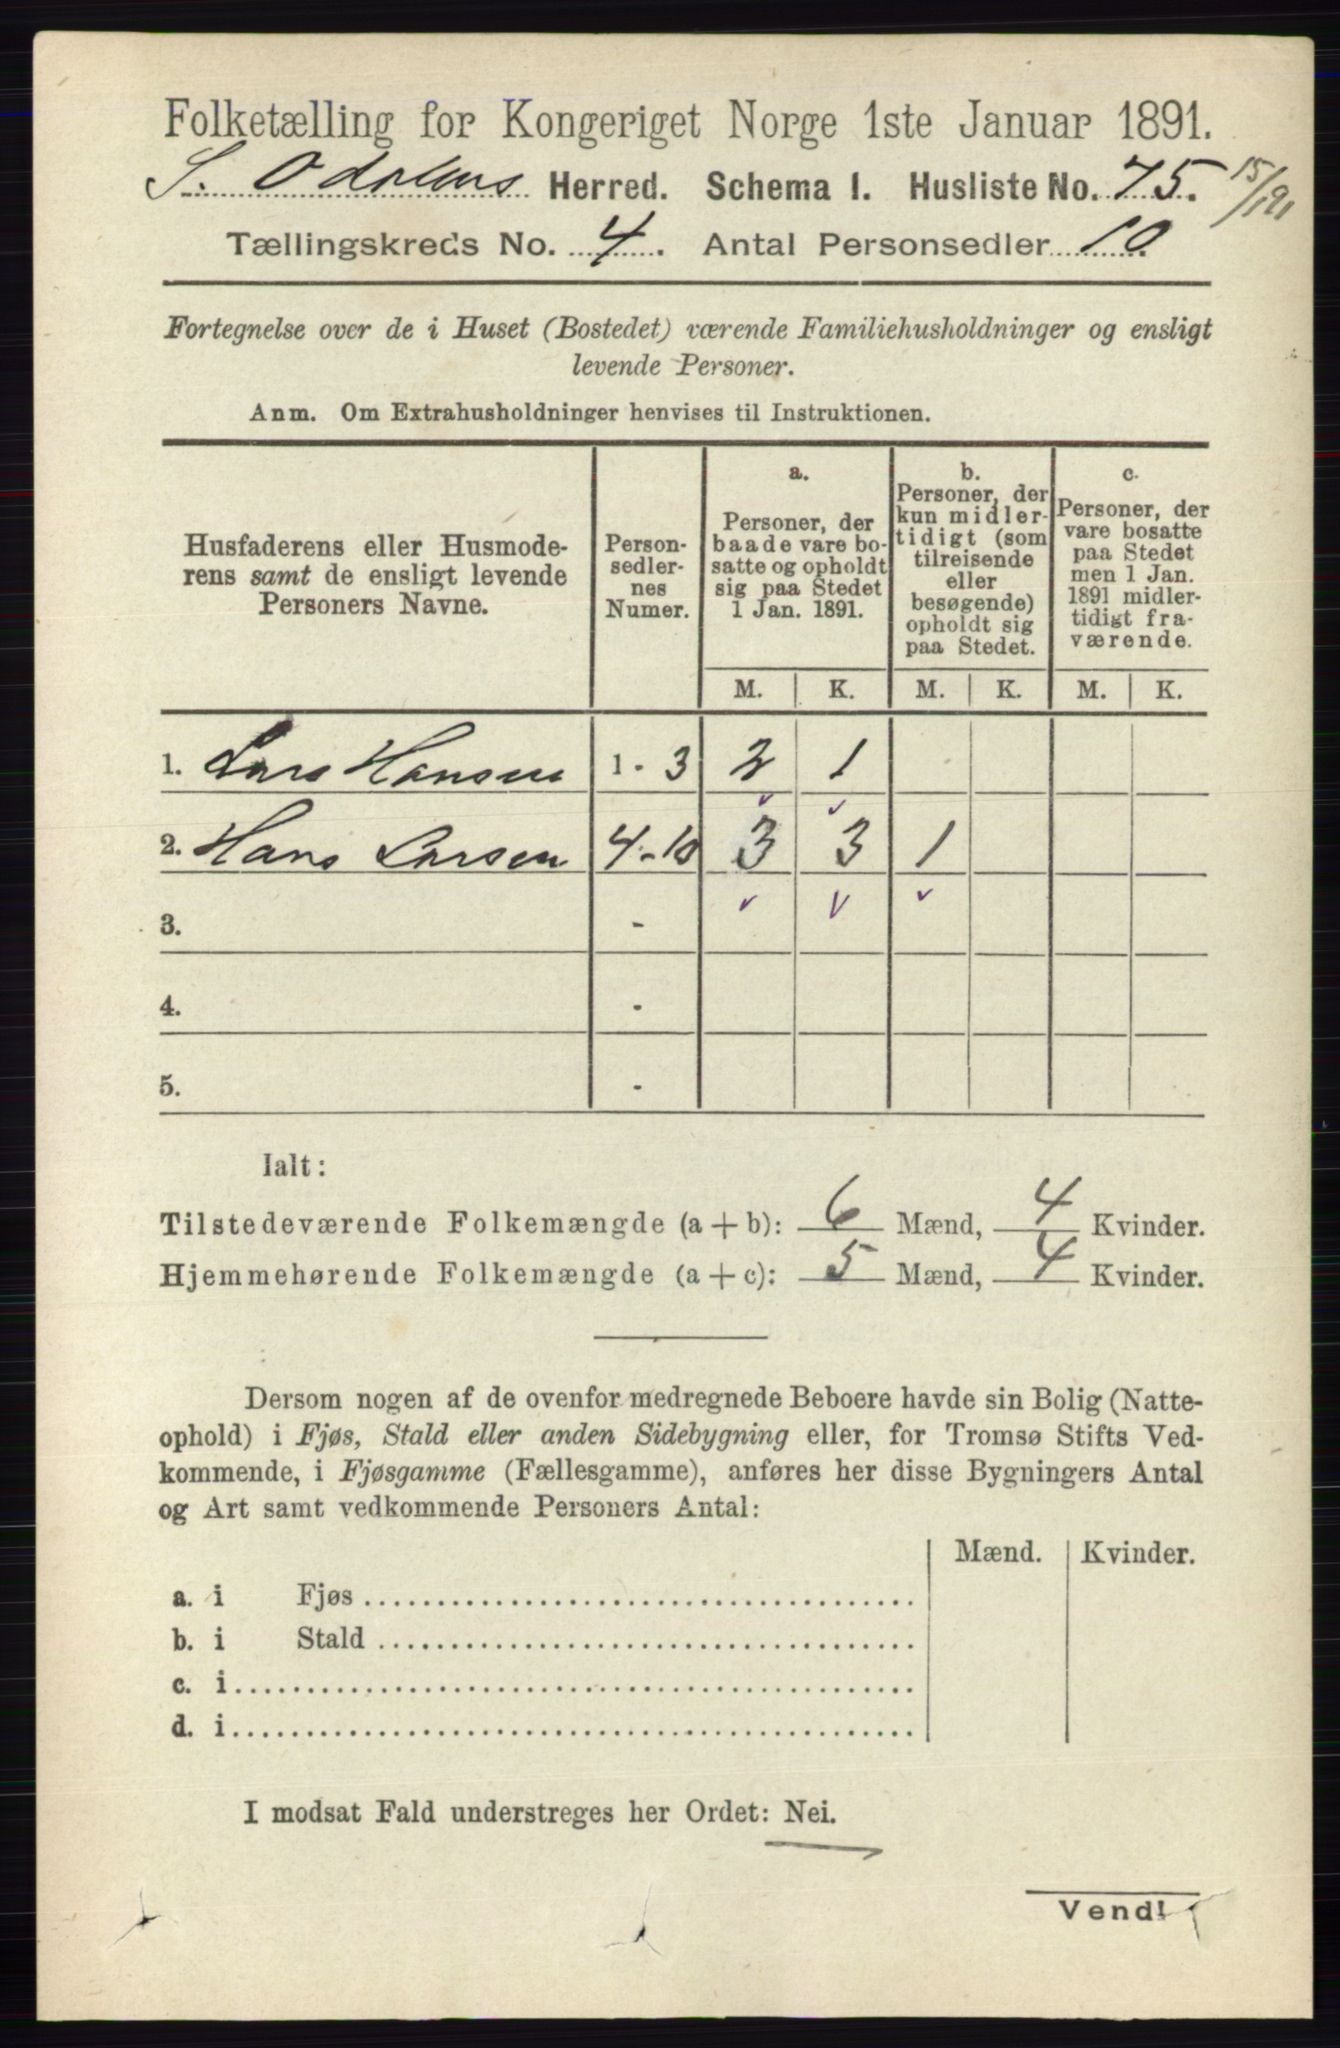 Folketælling for Kongeriget Norge 1ste Januar 1891.
S. Odalens Herred. Schema I. Husliste No. 75. 15/191
Tællingskreds No. 4. Antal Personsedler 10.
Fortegnelse over de i Huset (Bostedet) værende Familiehusholdninger og ensligt
levende Personer.
Anm. Om Extrahusholdninger henvises til Instruktionen.
Husfaderens eller Husmode-
rens samt de ensligt levende
Personers Navne.
Person-
sedler-
nes
Numer.
a.
Personer, der
baade vare bo-
satte og opholdt
sig paa Stedet
1 Jan. 1891.
b.
Personer, der
kun midler-
tidigt (som
tilreisende
eller
besøgende)
opholdt sig
paa Stedet.
c.
Personer, der
vare bosatte
paa Stedet
men 1 Jan.
1891 midler-
tidigt fra-
værende.
M. K. M. K. M. K.
1. Lars Hansen 1 - 3 2 1
2. Hans Larsen 4 - 10 3 3 1
3. -
4. -
5. -
Ialt:
Tilstedeværende Folkemængde (a + b): 6 Mænd, 4 Kvinder.
Hjemmehørende Folkemængde (a + c): 5 Mænd, 4 Kvinder.
Dersom nogen af de ovenfor medregnede Beboere havde sin Bolig (Natte-
ophold) i Fjøs, Stald eller anden Sidebygning eller, for Tromsø Stifts Ved-
kommende, i Fjøsgamme (Fællesgamme), anføres her disse Bygningers Antal
og Art samt vedkommende Personers Antal:
Mænd. Kvinder.
a. i Fjøs
b. i Stald
c. i
d. i
I modsat Fald understreges her Ordet: Nei.
Vend!